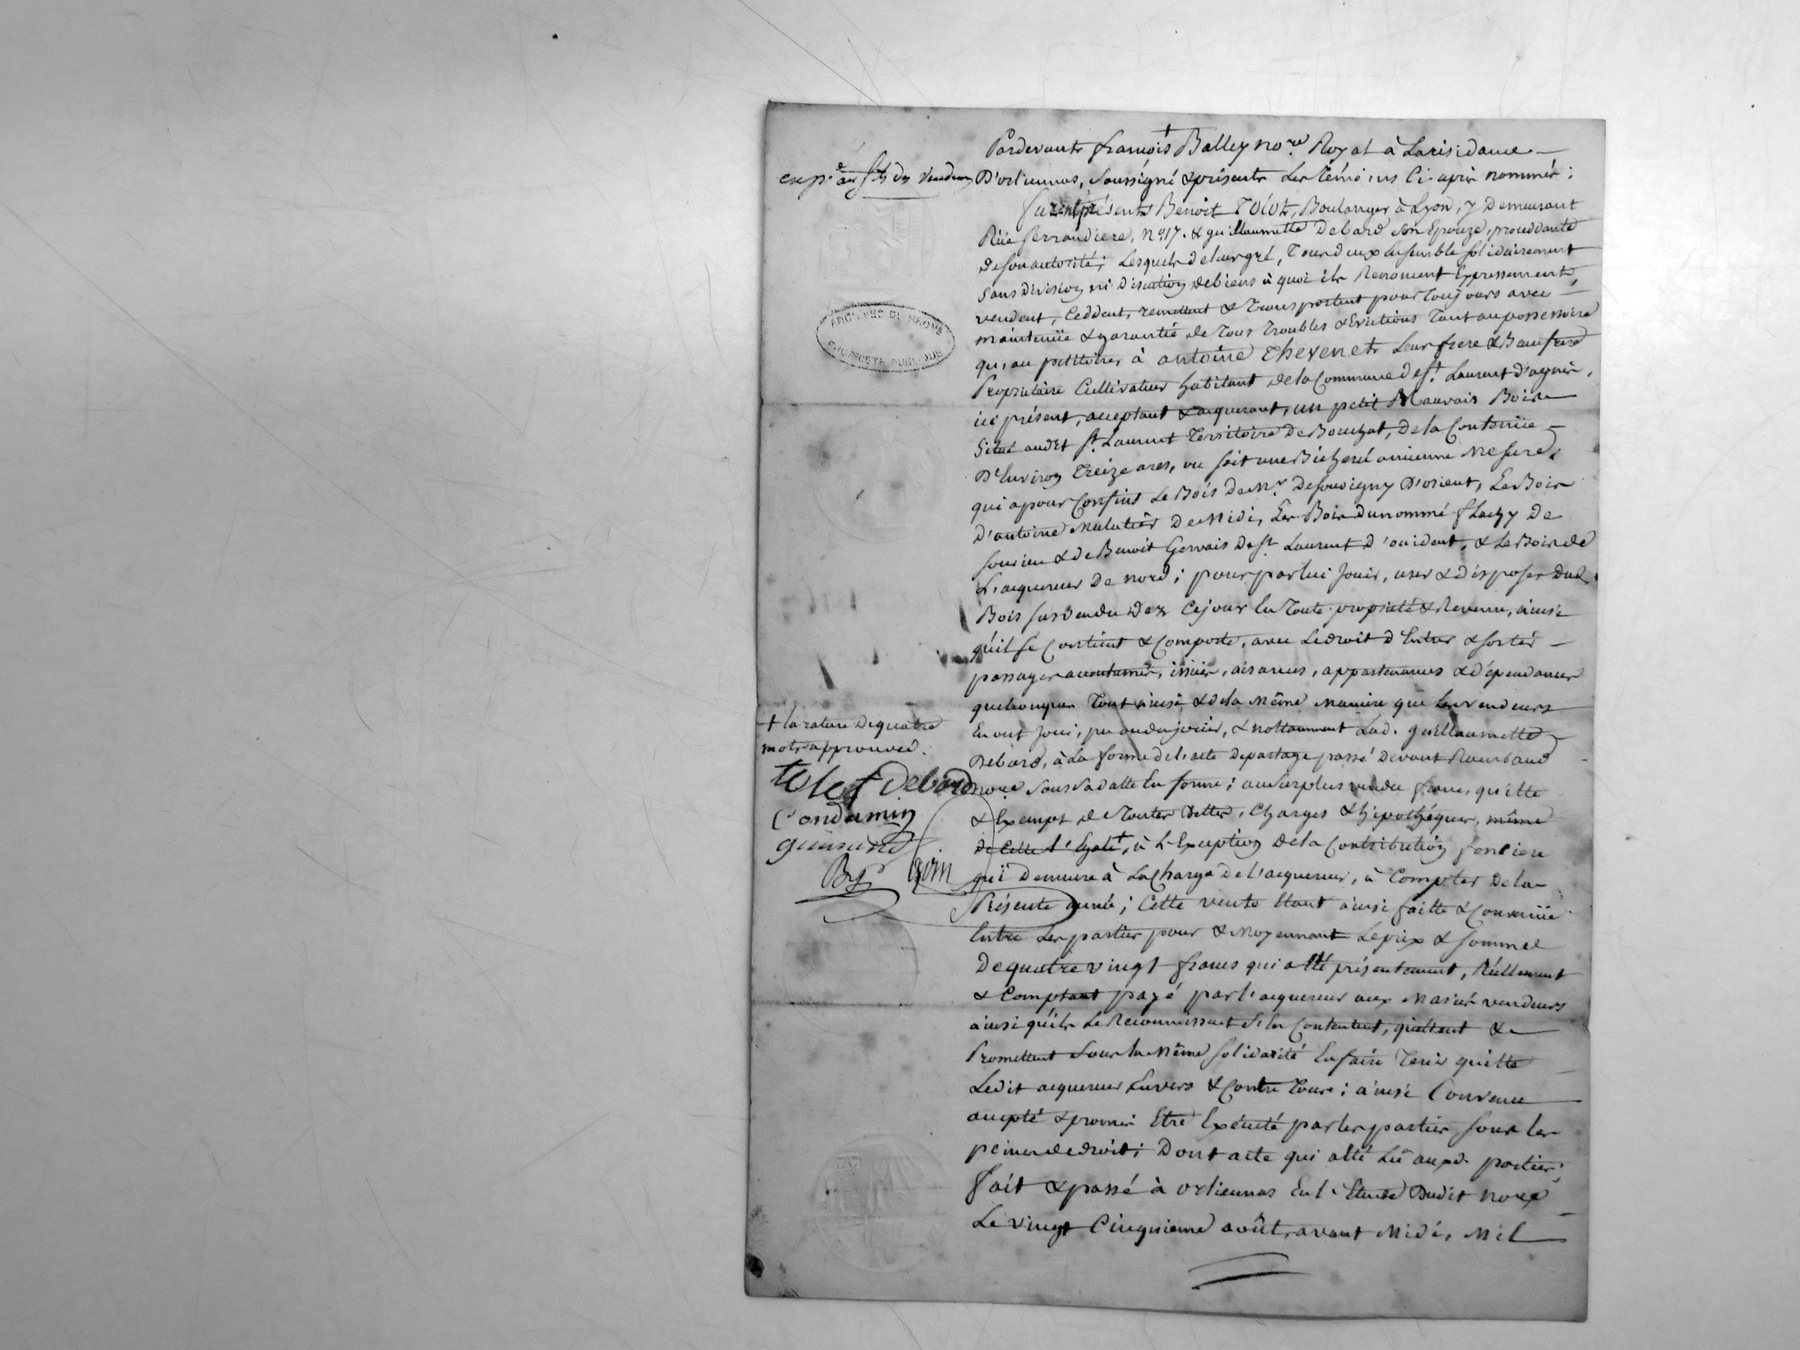 Pardevant françois Balley no.re Royal à La résidance
D'orliennas, soussigné & présents les témoins ci-après nommés;
furent présents Benoit Tolot, Boulanger à Lyon, y demeurant
Rüe ferrandiere, N.o 17. & guillaumette Debard son épouze, procédante
de son autorité; Lesquels de leur gré, Tous deux Ensemble solidairement
sans division ni discution de biens à quoi ils Renoncent Expressement,
vendent, Ceddent, remettent & Transportent pour toujours avec
maintenüe & garantie de Tous Troubles & Evictions Tant au possessoire
qu'au petitoire, à antoine Thevenet Leur frere & Beaufrere
Propriétaire Cultivateur habitant de la Commune de S.t Laurent d'agnis,
ici présent, acceptant & acquerant, un petit Mauvais Bois
Situé audit S.t Laurent Territoire De Bouchat, De la Contenüe
D'Environ Treize ares, ou soit une Bicherée ancienne Mesure,
qui a pour Confins Le Bois de M.r De souvigny D'orient, Le Bois
d'antoine Mulatier De Midi, Les Bois du nommé flachy de
soucieu & de Benoit Gervais de S.t Laurent d'occident, & Le Bois de
L'acquereur De nord; pour par lui Jouir, user & disposer dud.
Bois sus vendu Dez Cejour En Toute propriété & Revenu, ainsi
qu'il se Contient & Comporte, avec Le droit d'Entrer & sortir
passages accoutumés, issües, aisances, appartenances & dépendances
quelconques Tout ainsi & de la Même Maniere que Les vendeurs
En ont Joui, pu ou du joüir, & nottamment Lad. guillaumette
Debard, à La forme de l'acte de partage passé Devant
no.re sous sa datte En forme; au surplus vendu franc, quitte
& Exempt de Toutes Dettes, Charges & hipothéques, même
de Celle L'Egale +, à L'Exception de la Contribution fonciere
qui Demeure à La Charge de l'acquereur, à Compter de la
Présente année; Cette vente Etant ainsi faitte & Convenüe
Entre Les parties pour & Moyennant Le prix & somme
De quatre vingt francs qui a Eté présentement, Réellement
& Comptant payé par l'acquereur aux Mariés vendeurs
ainsi qu'ils Le Reconnoissent s'En Contentent, quittent &
Promettent sous la Même solidarité En faire Tenir quitte
Ledit acquereur Envers & Contre Tous; ainsi Convenu
accepté & promis Etre Exécuté par les parties sous les
peines de droit; Dont acte qui a Eté Lû aux d. parties;
fait & passé à orliennas En l'Etude Dudit no.re
Le vingt Cinquieme août, avant Midi, Mil
exp.e au des vendeurs
ARCHIVES DU RHONE
+ La rature de quatre
mots approuvée.
tolot debard
Condamin